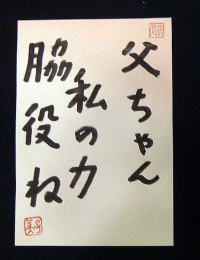 父ちゃん
私の力
脇役ね